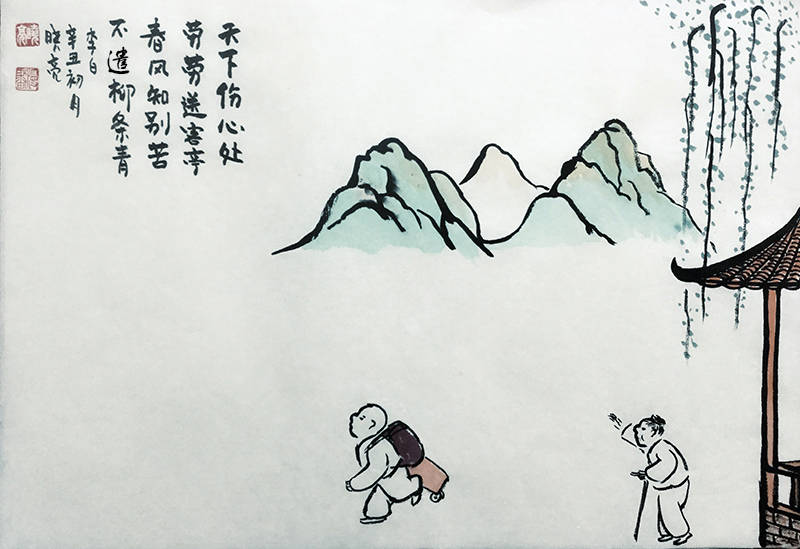 天下伤心处
劳劳送客亭
春风知别苦
不遣柳条青
李白
辛丑初月
晓亮